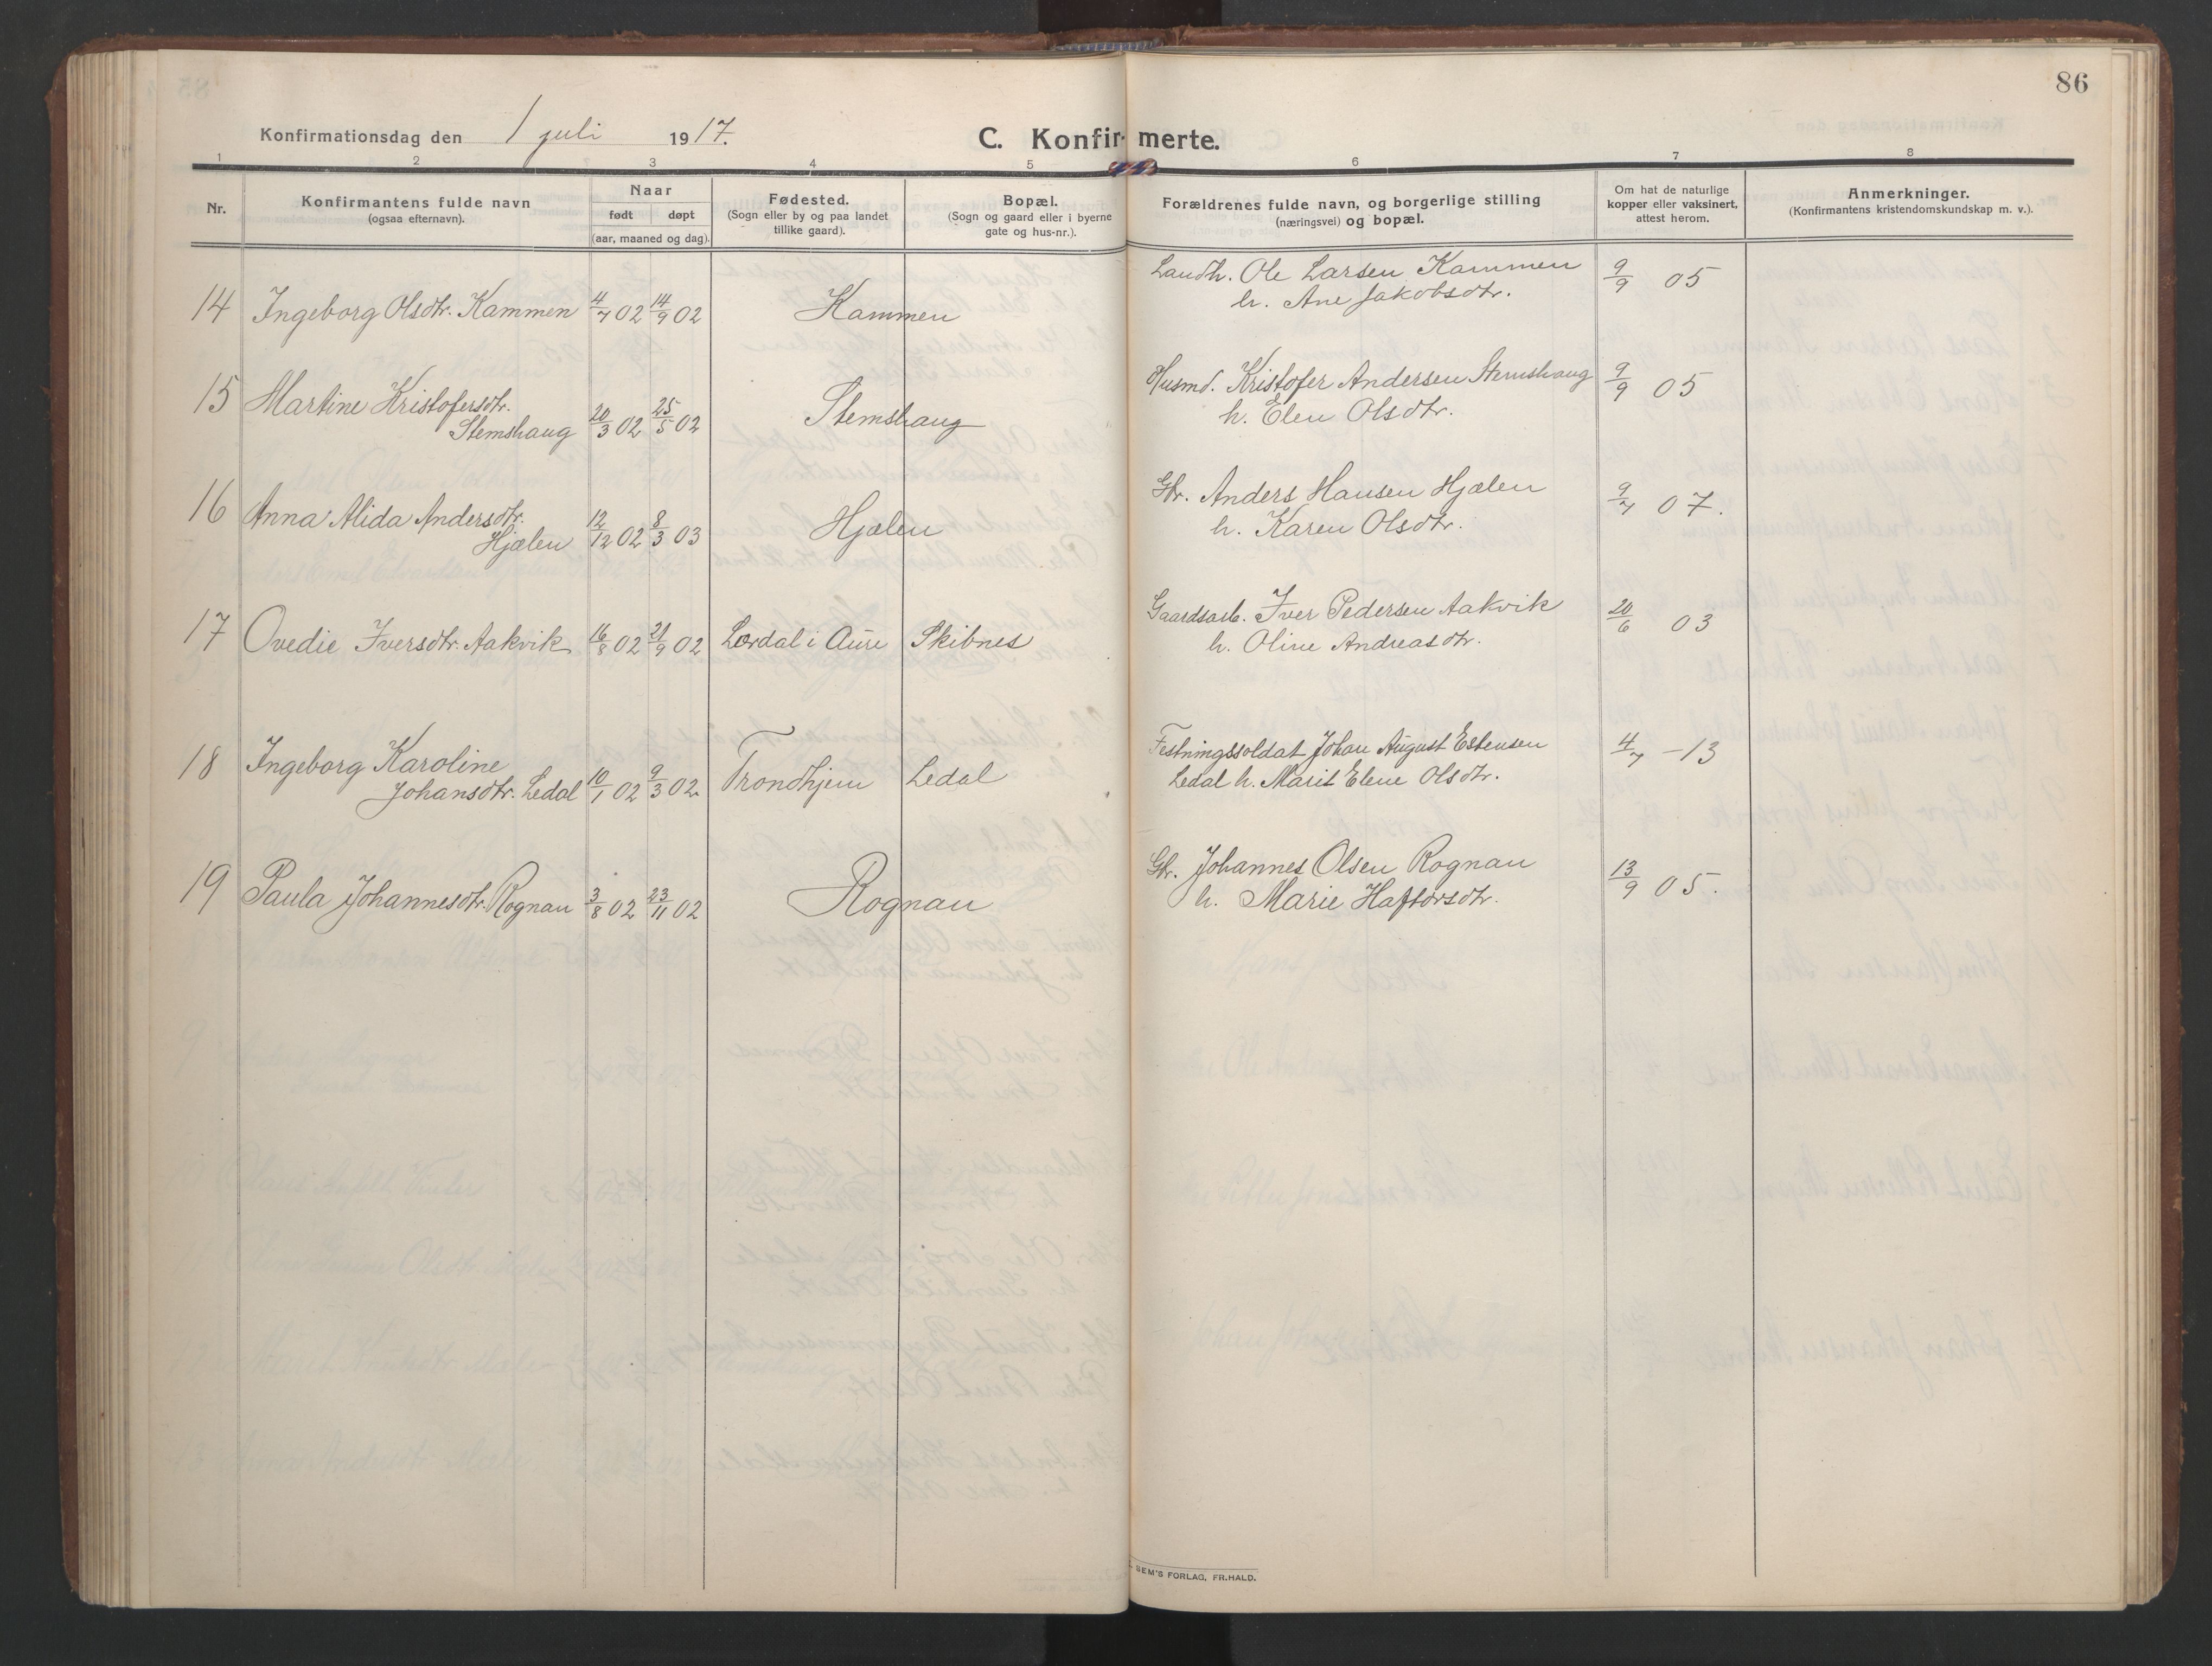 86
Konfirmationsdag den 1 juli 1917.
C. Konfirmerte.
1 2 3 4 5 6 7 8
Nr.
Konfirmantens fulde navn
(ogsaa efternavn).
Naar
født døpt
(aar, maaned og dag).
Fødested.
(Sogn eller by og paa landet
tillike gaard).
Bopæl.
(Sogn og gaard eller i byerne
gate og hus-nr.).
Forældrenes fulde navn, og borgerlige stilling
(næringsvei) og bopæl.
Om hat de naturlige
kopper eller vaksinert,
attest herom.
Anmerkninger.
(Konfirmantens kristendomskundskap m. v.).
14 Ingeborg Olsdtr. Kammen 4/7 02 14/9 02 Kammen
Landh. Ole Larsen Kammen
h. Ane Jakobsdtr.
9/9 05
15 Martine Kristofersdtr.
Stemshaug 20/3 02 25/5 02 Stemshaug
Husmd. Kristofer Andersen Stemshaug
h. Elen Olsdtr.
9/9 05
16 Anna Alida Andersdtr.
Hjælen 12/12 02 8/3 03 Hjælen
Gbr. Anders Hansen Hjælen
h. Karen Olsdtr.
9/7 07.
17 Ovedie Iversdtr. Aakvik 16/8 02 21/9 02 Lordal i Aure Skibnes
Gaardsarb. Iver Pedersen Aakvik
h. Oline Andreasdtr.
20/6 03
18 Ingeborg Karoline
Johansdtr. Ledal 10/1 02 9/3 02. Trondhjem Ledal
Festningssoldat Johan August Estensen
Ledal h. Marit Elene Olsdtr.
4/7 -13
19 Paula Johannesdtr. Rognau 3/8 02 23/11 02 Rognau
Gbr. Johannes Olsen Rognau
h. Marie Haftorsdtr.
13/9 05.
SEM'S FORLAG, FR.HALD.